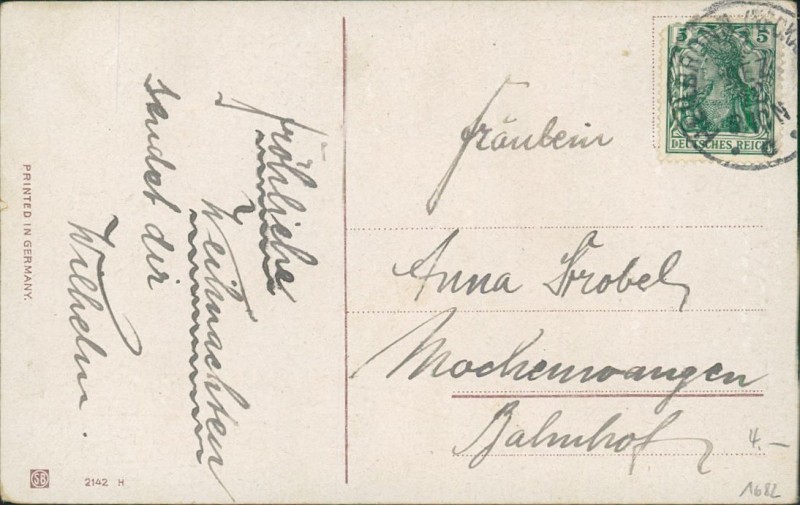 fröhliche
Weihnachten
sendet dir
Wilhelm.
PRINTED IN GERMANY.
2142 H
Fräulein
Anna Strobel
Mochenwangen
Bahnhof
5 5
DEUTSCHES REICH
4.–
1682